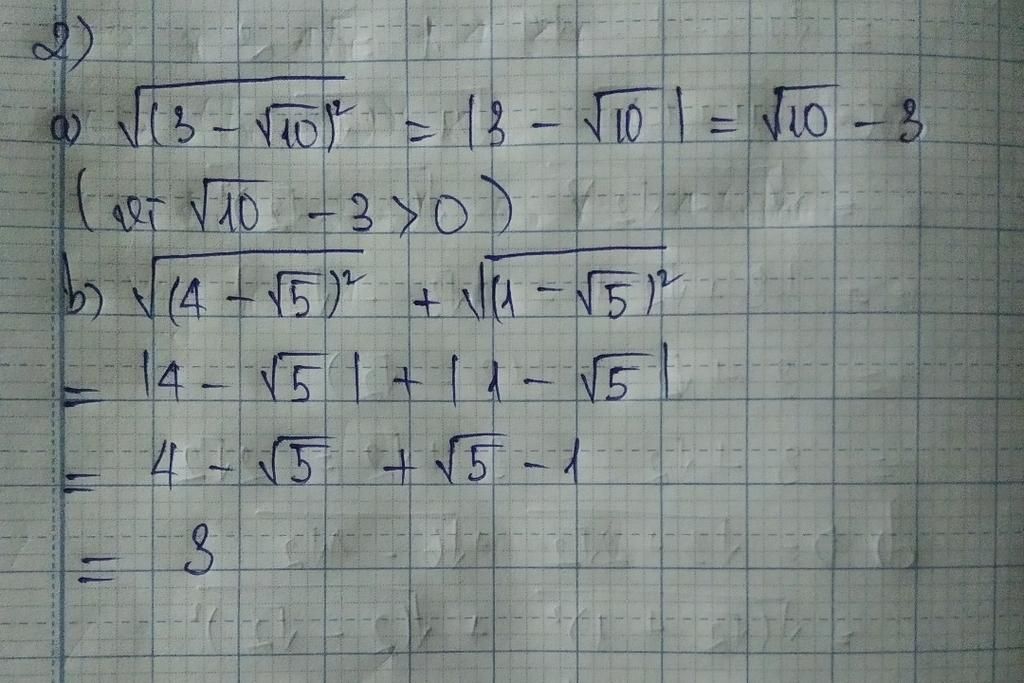 2)
a) √(3 - √10)² = |3 - √10| = √10 - 3
( √10 - 3 > 0 )
b) √(4 - √5)² + √(1 - √5)²
= |4 - √5| + |1 - √5|
= 4 - √5 + √5 - 1
= 3